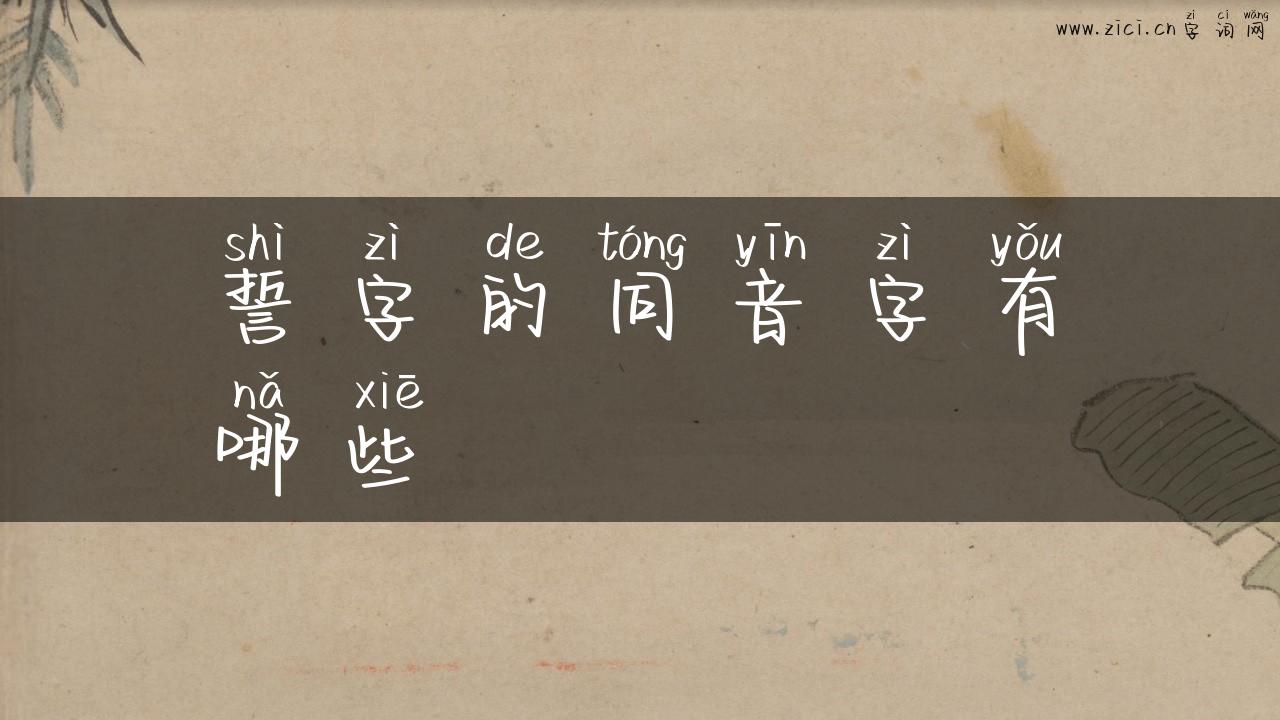 zì cí wǎng
www.zici.cn 字 词 网
shì zì de tóng yīn zì yǒu
誓 字 的 同 音 字 有
nǎ xiē
哪 些